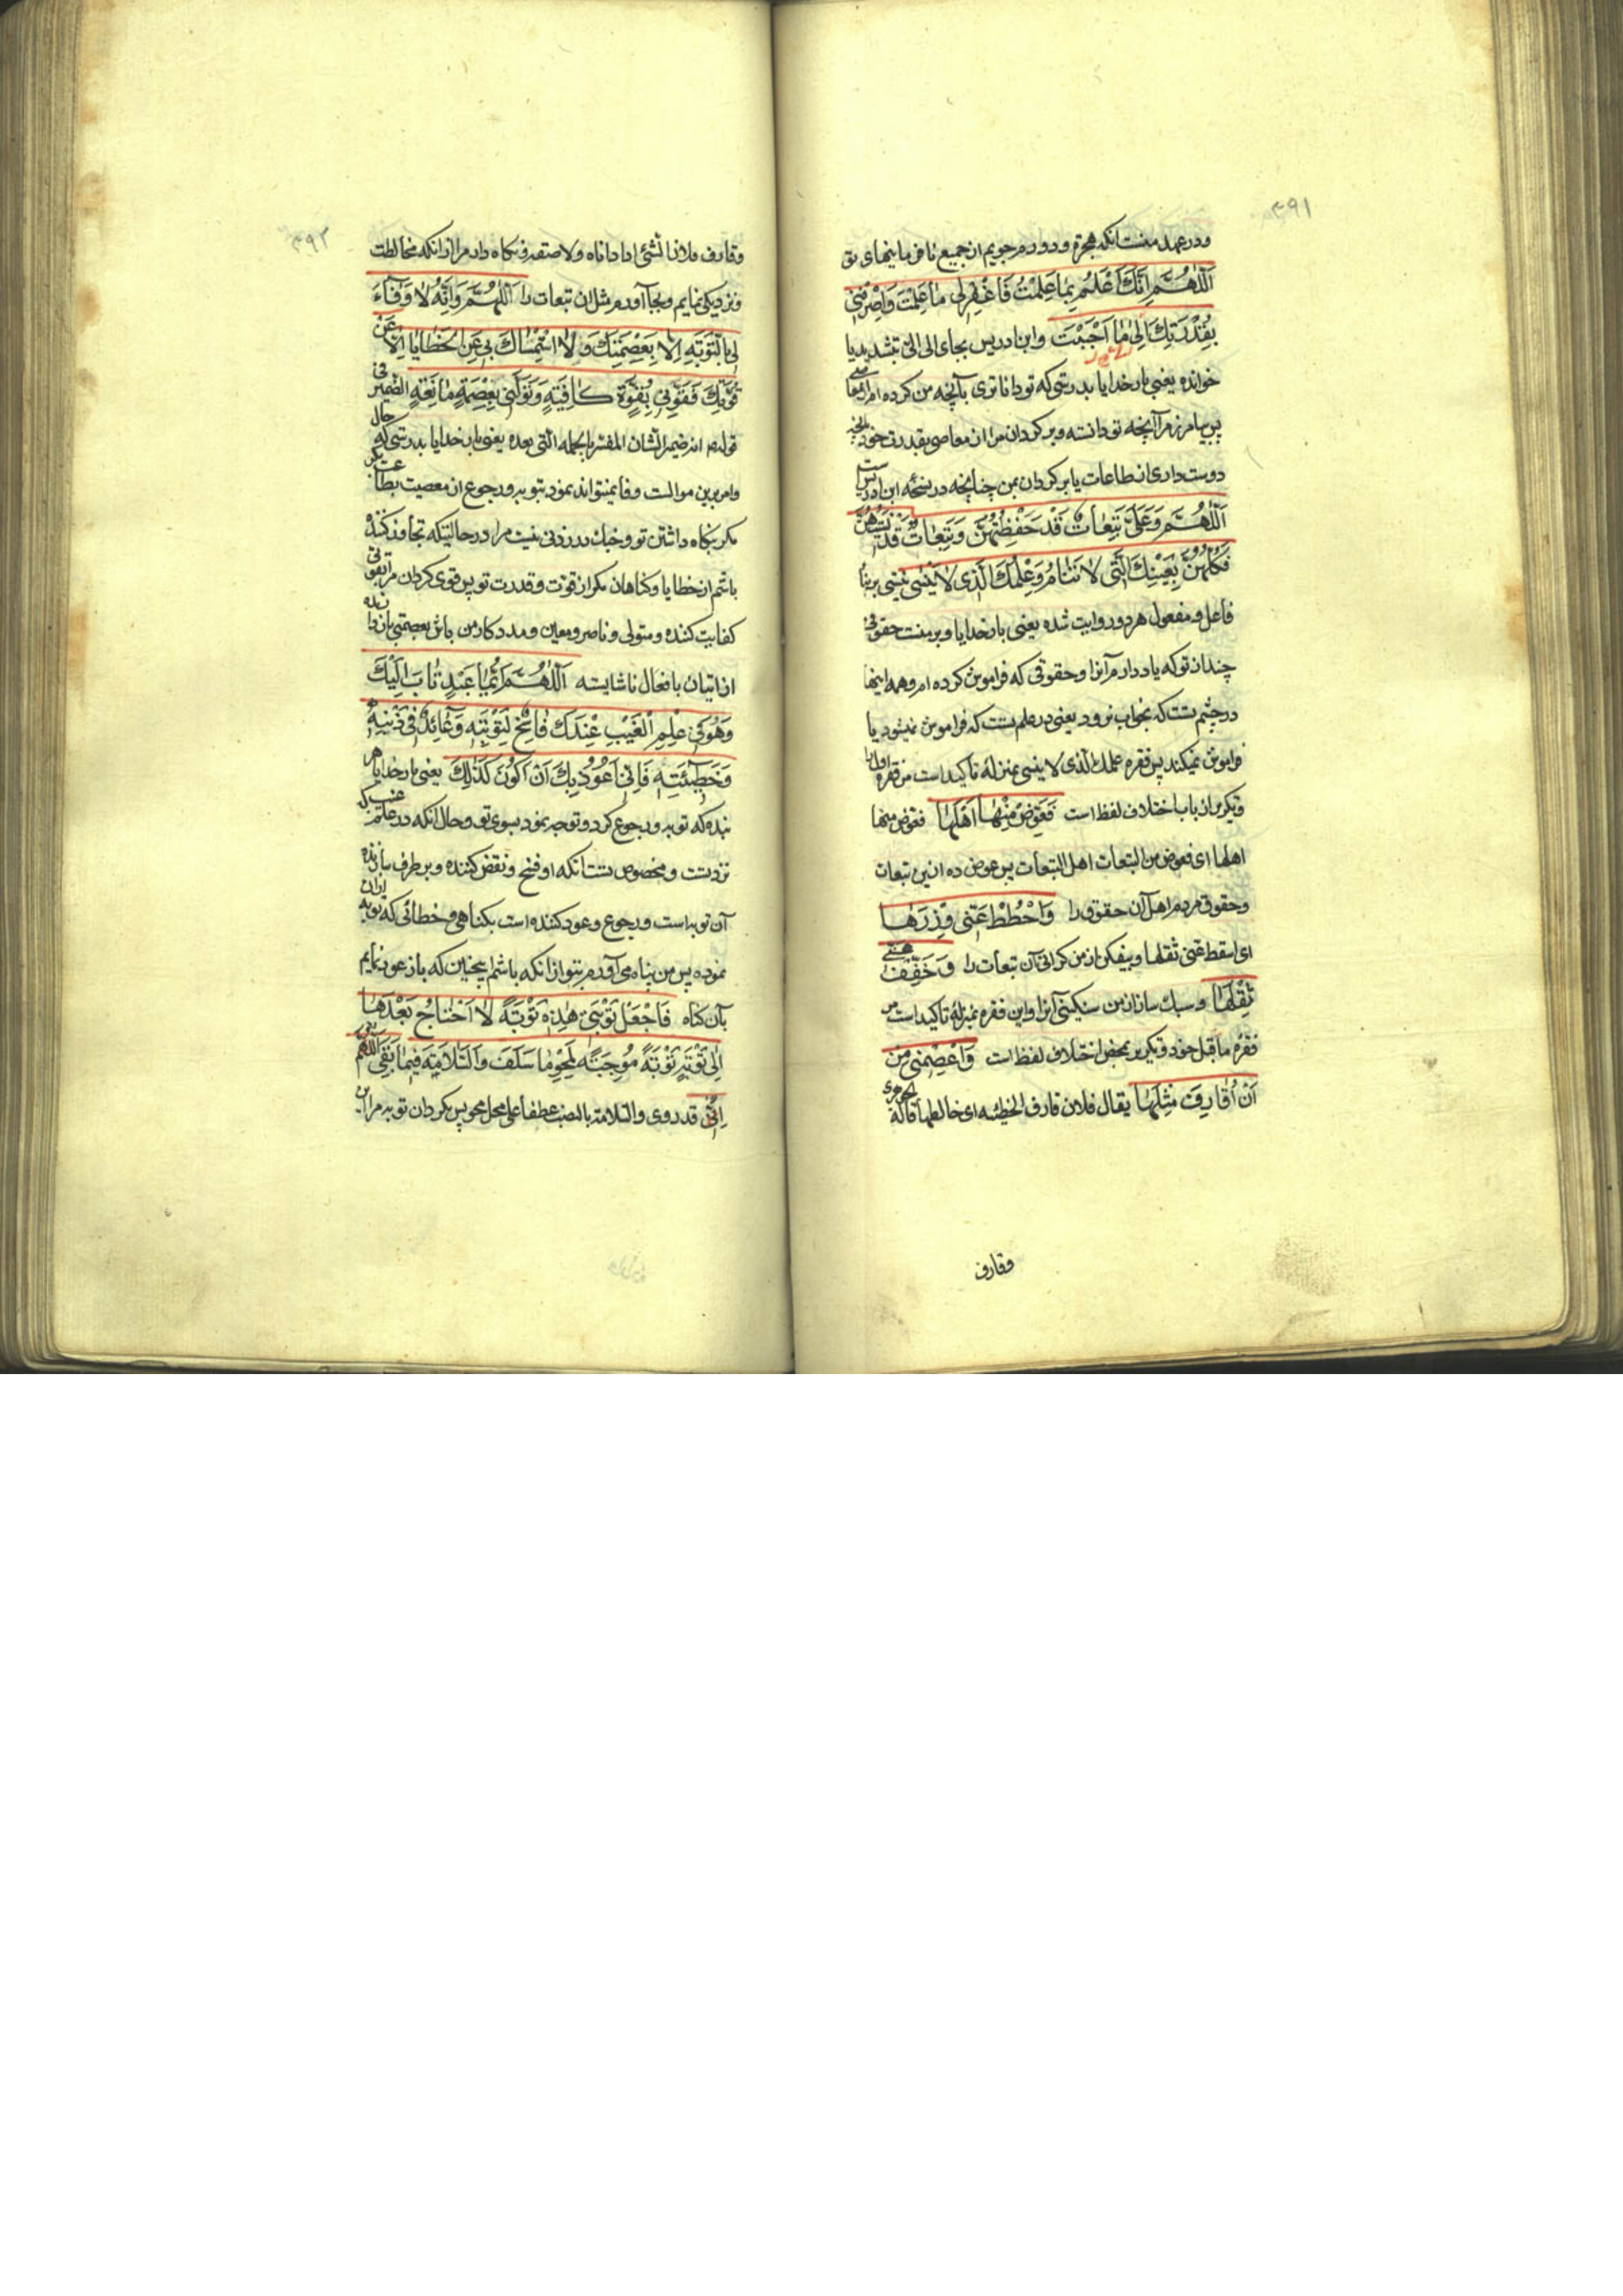 ۳۹۱
ودر عهد منست انکه هجرة و دوره جویم از جمیع نافرمانیهای تو
اَللّٰهُمَّ اِنَّكَ اَعْلَمُ بِمَا عَمِلْتُ فَاغْفِرْلِی مَا عَلِمْتَ وَاصْرِفْنِی
بِقُدْرَتِكَ اِلٰی مَا اَحْبَبْتَ وابن ادریس بجای الی الیّ بتشدید یا
خوانده یعنی بار خدایا بدرستی که تو داناتری بآنچه من کرده‌ام از معاصی
پس بیامرز مرا آنچه تو دانسته و برگردان مرا از معاصی بقدرت خود بآنچه
دوست داری از طاعات یا برگردان بمن چنانچه در نسخه ابن ادریس است
اَللّٰهُمَّ وَعَلَیَّ تَبِعَاتٌ قَدْ حَفِظْتُهُنَّ وَتَبِعَاتٌ قَدْ نَسِیتُهُنَّ
وَکُلُّهُنَّ بِعَیْنِكَ الَّتِی لَا تَنَامُ وَعِلْمِكَ الَّذِی لَا یَنْسٰی ینسی بر بناء
فاعل و مفعول هر دو روایت شده یعنی بار خدایا و بر منست حقوقی
چند از تو که یاد دارم آنرا و حقوقی که فراموش کرده‌ام و همه اینها
در چشم تست که بخواب نرود یعنی در علم تست که فراموش نمیشود یا
فراموش نمیکند پس فقره علمك الذی لا ینسی بمنزله تاکید است من فقره اولی را
و تکریر از باب اختلاف لفظ است فَعَوِّضْ مِنْهَا اَهْلَهَا فعوض منها
اهلها ای فعوض من التبعات اهل التبعات پس عوض ده از این تبعات
و حقوق مردم اهل آن حقوق را وَاحْطُطْ عَنِّی وِزْرَهَا
ای اسقط عنی ثقلها و بیفکن از من گرانی آن تبعات را وَخَفِّفْ عَنِّی
ثِقْلَهَا و سبك ساز از من سنگینی آنرا و این فقره بمنزله تاکید است مر
فقره ما قبل خود و تکریر بمحض اختلاف لفظ است وَاعْصِمْنِی مِنْ
اَنْ اُقَارِفَ مِثْلَهَا یقال فلان قارف الخطیئه ای خالطها قاله الجوهری
وقارف
۳۹۲
وقارف فلانا الشئ اذا داناه ولاصقه و نگاه دار مرا از انکه مخالطت
و نزدیکی نمایم و بجا آورم مثل ان تبعات را اَللّٰهُمَّ وَاِنَّهُ لَا وَفَاءَ
لِی بِالتَّوْبَةِ اِلَّا بِعِصْمَتِكَ وَلَا اسْتِمْسَاكَ بِی عَنِ الْخَطَایَا اِلَّا عَنْ
قُوَّتِكَ فَقَوِّنِی بِقُوَّةٍ کَافِیَةٍ وَتَوَلَّنِی بِعِصْمَةٍ مَانِعَةٍ الضمیر فی
قوله انه ضمیر الشان المفسر بالجمله التی بعده یعنی بار خدایا بدرستی که حال
و امر برین منوالست وفا نمیتواند نمود بتوبه و رجوع از معصیت بطاعت مگر
مگر بنگاه داشتن تو و خبك در زدنی نیست مرا در حالتیکه تجاوز کننده
باشم از خطایا و گناهان مگر از قوت و قدرت تو پس قوی گردان مرا بقوتی
کفایت کننده و متولی و ناصر و معین و مددکار من باش بعصمتی باز دارنده
از اتیان بافعال ناشایسته اَللّٰهُمَّ اَیُّمَا عَبْدٍ تَابَ اِلَیْكَ
وَهُوَ فِی عِلْمِ الْغَیْبِ عِنْدَكَ فَاسِخٌ لِتَوْبَتِهِ وَعَائِدٌ فِی ذَنْبِهِ
وَخَطِیئَتِهِ فَاِنِّی اَعُوذُ بِكَ اَنْ اَکُونَ کَذٰلِكَ یعنی بار خدایا هر
بنده که توبه و رجوع کرد و توجه نمود بسوی تو و حال انکه در علم غیب که
نزد تست و مخصوص تست انکه او فسخ و نقض کننده و بر طرف سازنده
آن توبه است و رجوع و عود کننده است بگناهی و خطائی که توبه از آن
نموده پس من پناه می آورم بتو از انکه باشم اینچنین که باز عود نمایم
بآن گناه فَاجْعَلْ تَوْبَتِی هٰذِهِ تَوْبَةً لَا اَحْتَاجُ بَعْدَهَا
اِلٰی تَوْبَةٍ تَوْبَةً مُوجِبَةً لِمَحْوِ مَا سَلَفَ وَالسَّلَامَةِ فِیمَا بَقِیَ اللّٰهم
اِنِّی قد روی والسلامة بالنصب عطفا علی محل محو پس بگردان توبه مرا این